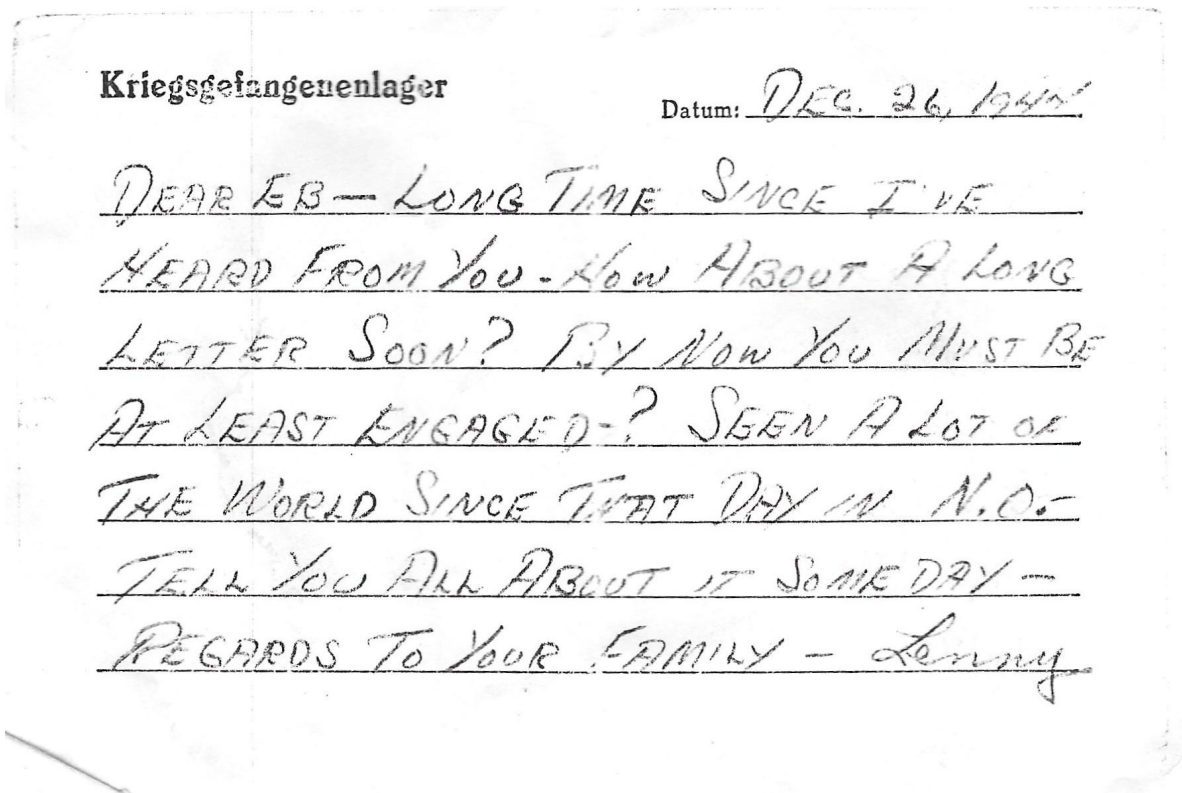 Kriegsgefangenenlager
Datum: DEC. 26, 1944
DEAR EB — LONG TIME SINCE I'VE
HEARD FROM YOU - HOW ABOUT A LONG
LETTER SOON? BY NOW YOU MUST BE
AT LEAST ENGAGED-? SEEN A LOT OF
THE WORLD SINCE THAT DAY IN N.O. -
TELL YOU ALL ABOUT IT SOME DAY —
REGARDS TO YOUR FAMILY — Lenny